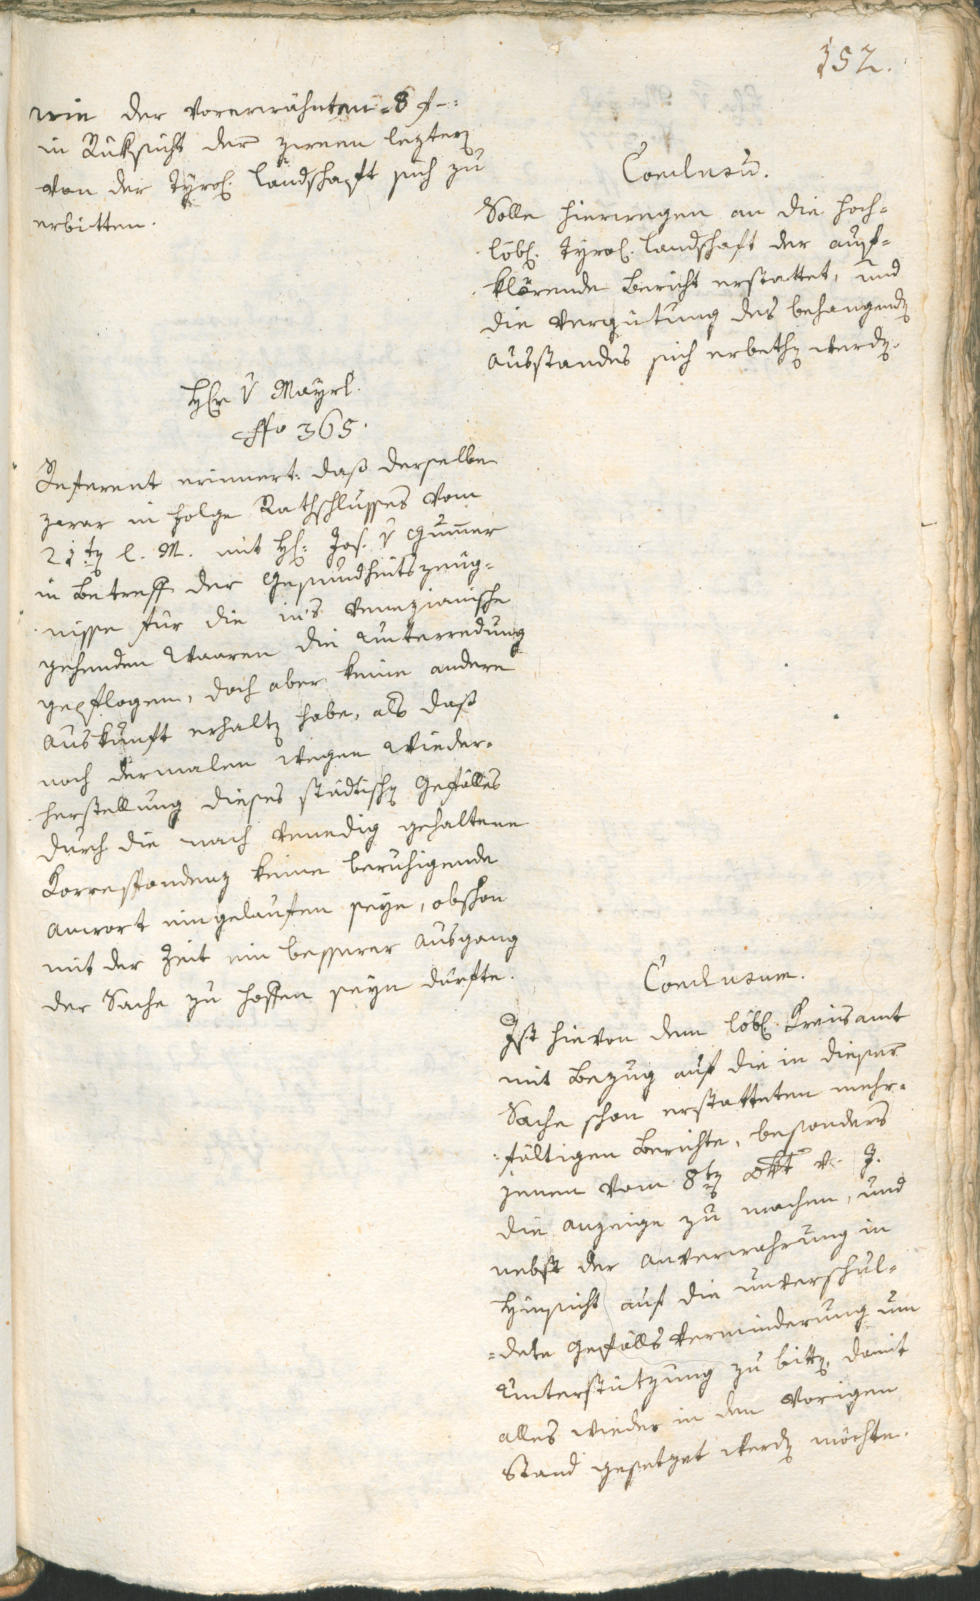 152.
wie der vorerwähnten 8 f –:
in Rüksicht der zween leztern
von der Tyrol. Landschaft sich zu
erbitten.
Conclusum.
Solle hierwegen an die hoch-
löbl. Tyrol. Landschaft der auf-
klärende Bericht erstattet, und
die Vergütung des behangenden
Ausstandes sich erbethen werden.
Herr v Mayrl.
ffo 365.
Referent erinnert: daß derselbe
zwar in Folge Rathschlusses vom
21ten l. M. mit H: Jos. v Gum̄er
in Betreff der Gesundheitszeug-
nisse für die in's Venezianische
gehenden Waaren die Unterredung
gepflogen, doch aber keine andere
Auskunft erhalten habe, als daß
noch dermalen wegen Wieder-
herstellung dieses städtischen Gefälles
durch die nach Venedig gehaltene
Korrespondenz keine beruhigende
Anwort eingelaufen seye, obschon
mit der Zeit ein besserer Ausgang
der Sache zu hoffen seyn dürfte.
Conclusum.
Ist hievon dem löbl. Kreisamt
mit Bezug auf die in dieser
Sache schon erstatteten mehr-
fältigen Berichte, besonders
jenem vom 8ten v. J.
die Anzeige zu machen, und
nebst der Anverwahrung in
Hinsicht auf die unverschul-
dete Gefälls Verminderung um
Unterstützung zu bitten, damit
alles wieder in den vorigen
Stand gesetzet werden möchte.